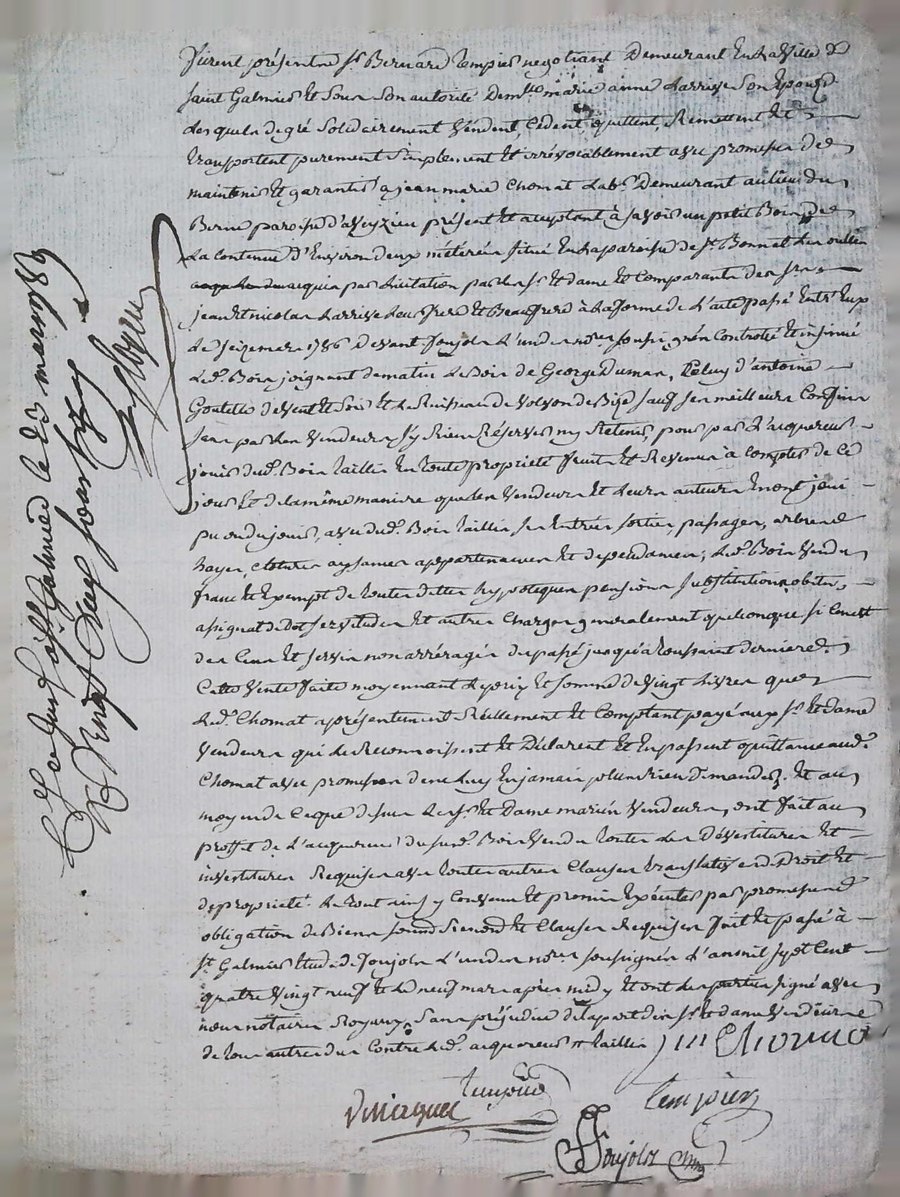 furent présents Sr. Bernard Tempier negotiant Demeurant En la Ville de
Saint Galmier Et sous son autorité Demlle marie anne Larrive son Epouze
Lesquels de gré Solidairement Vendent, Cèdent, quittent, Remettent Et
transportent purement simplement Et irrévocablement avec promesse de
maintenir Et garantir a jean marie Chomat Labr. Demeurant au lieu du
Berne paroisse d'aveyzieu présent Et acceptant à savoir un petit Bois de
La contenue d'Environ deux méterées situé En la paroisse de St. Bonnet Les oulles
acquis par Licitation par Les Sr. Et dame Et Comparants des Srs
jean Et nicolas Larrive Leur frere Et Beaufrere à La forme de L'acte passé Entr'Eux
Le seize mars 1786 Devant foujols L'un des nores soussignés Controllé Et insinué
Led. Bois joignant de matin Le Bois de George Dumas, Celuy d'antoine
de Vent Et soir Et Le Ruisseau de Volvon de Bize sauf ses meilleurs Confins
sans par Les Vendeurs s'y Rien Réserver ny Retenir, pour par L'acquereur
jouir dud. Bois taillis En toute propriété fruits Et Revenus à Compter de Ce
jour Et de la même maniere que Les Vendeurs Et Leurs auteurs En ont joui
pu ou du jouir, avec dud. Bois taillis ses Entrées sorties, passages, arbres
hayes, clotures aysances appartenances Et dependances, Led. Bois Vendu
franc Et Exempt de toutes dettes hypoteques pensions substitutions obits,
assignat de Dot servitudes Et autres Charges generalement quelconques si Ce n'est
des Cens Et servis non arréragés du passé jusqu'à toussaint derniere.
Cette Vente faite moyennant Le prix Et somme de vingt Livres que
Led. Chomat a présentement Réellement Et Comptant payé aux Sr. Et dame
Vendeurs qui Le Reconnoissent Et Déclarent Et En passent quittance aud.
Chomat avec promesse de ne Luy En jamais plus rien demander. Et au
moyen de Ce que dessus Les Sr. Et Dame mariés Vendeurs, ont fait au
proffit de L'acquereur dususd. Bois Vendu toutes Les Dévestitures Et
investitures Requises avec toutes autres Clauses translatives de Droit Et
de propriété. Le tout ainsy Convenu Et promis Exécuter par promesse
obligation de Biens Et Clauses Requises fait Et passé à
St. Galmier Etude de foujols L'un des nores soussignés L'an mil sept Cent
quatre Vingt neuf Et Le neuf mars après midy Et ont Les parties signé avec
nous notaires Royaux, sans préjudice de la part des Sr. Et dame Vendeurs
de tous autres dus Contre Led. acquereur # taillis jm Chomat
Tempier
Tempier
foujols
St. Galmier le 23 mars 1789